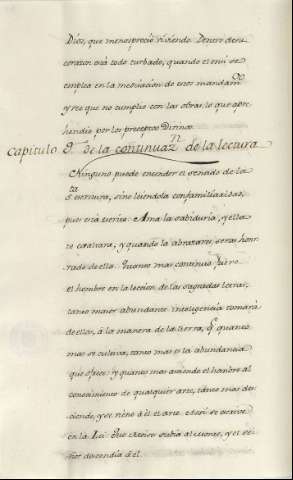 Dios, que menospreció viviendo. Dentro de su
corazon está todo turbado, quando el mi se
emplea en la meditacion de esos mandam.tos
y ve que no cumplio con las obras, lo que apre-
hendio por los preceptos Divinos
Capitulo 9.º de la continuaz.n de la lectura
Ninguno puede entender el sentido de la
Escritura, sino leiendola con familiaridad,
pues está escrito: Ama la sabiduria, y ella
te exaltara, y quando la abrazares, seras hon-
rado de ella. Quanto mas continuo fuere
el hombre en la leccion de las sagradas letras,
tanto maior abundante inteligencia tomará
de ellas, á la manera de la tierra, q quanto
mas se cultiva, tanto mas es la abundancia
que ofrece: y quanto mas atiende el hombre al
conocimiento de qualquier arte, tanto mas des-
ciende, y se viene á él el arte. Assi se escrive
en la Lei: Que Moises subia al monte, y el Se-
ñor descendia á él.